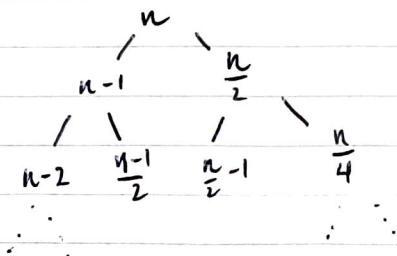 n
n-1 n/2
n-2 n-1/2 n/2-1 n/4